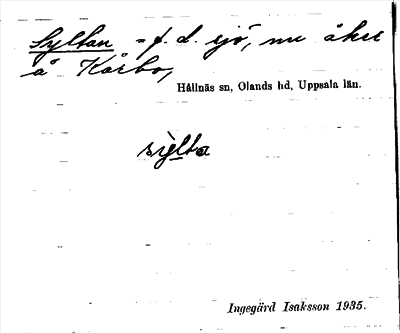 Syltan = f. d. sjö, nu åker
å Kårbo,
Hållnäs sn, Olands hd, Uppsala län.
sỳlta
Ingegärd Isaksson 1935.